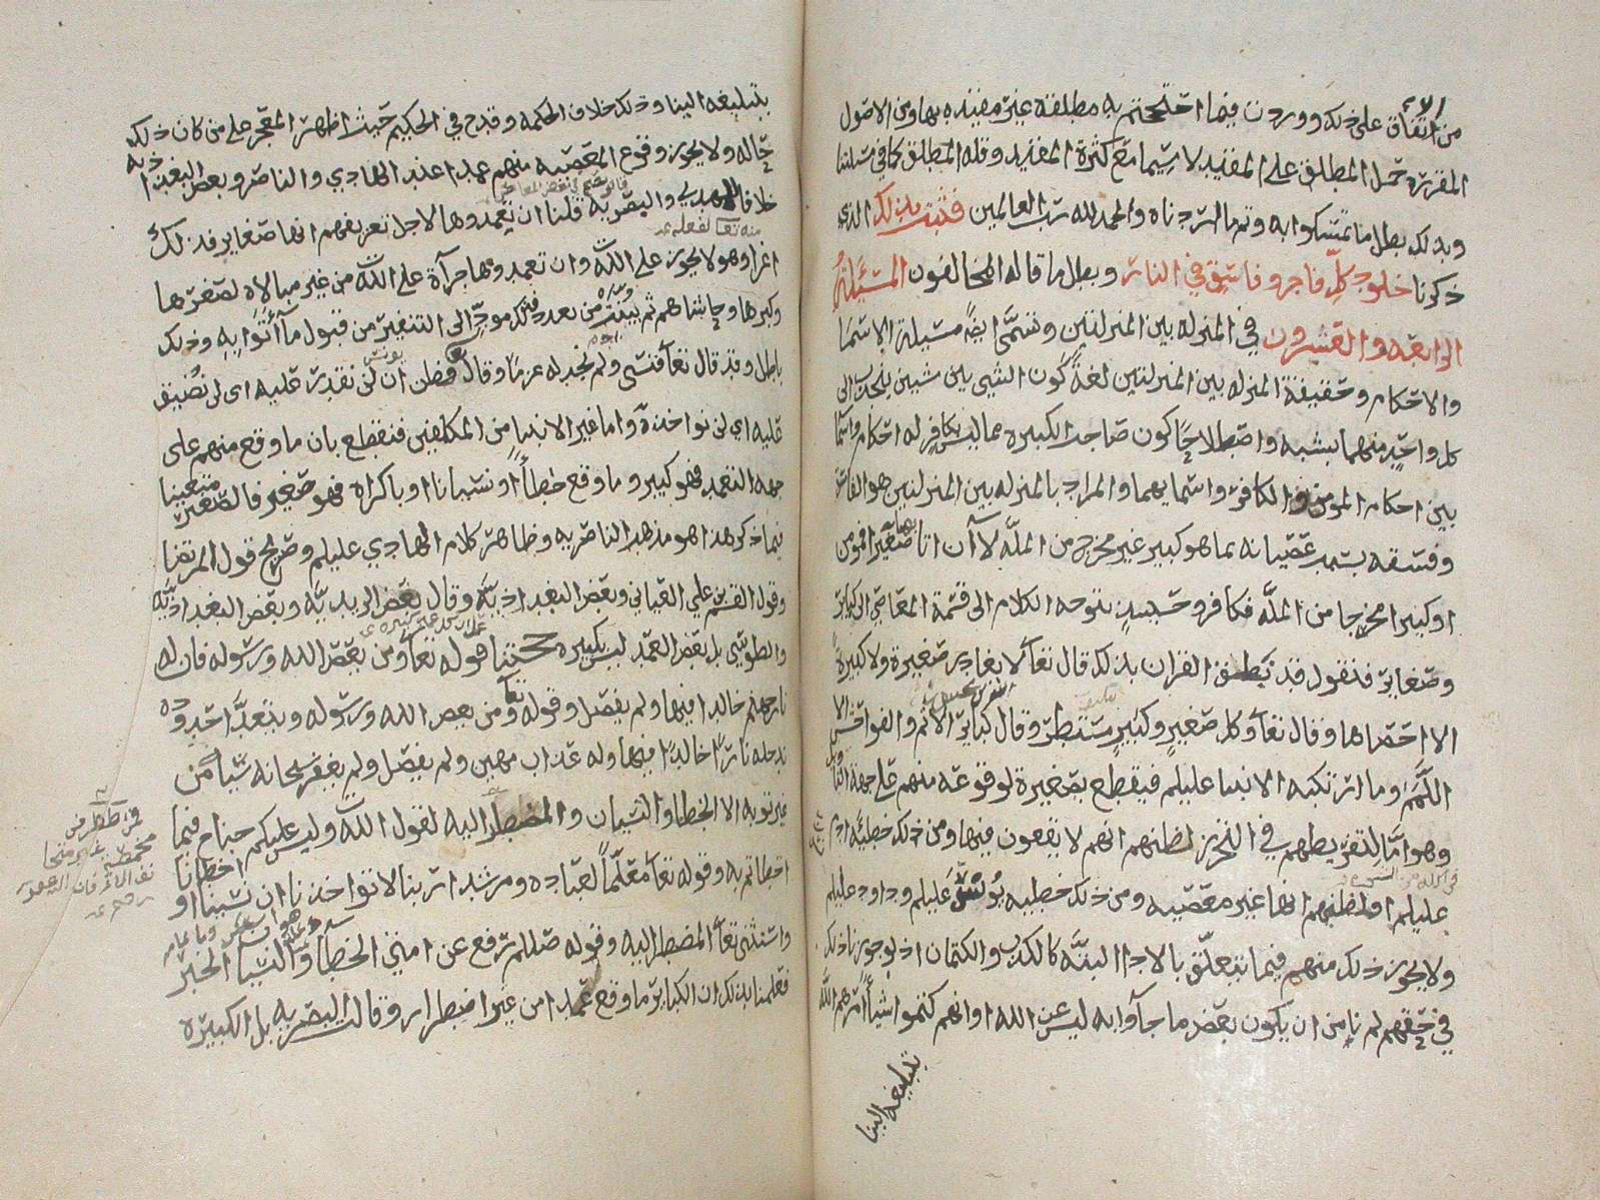 من الاتفاق على ذلك ووردت فيما احتججتم به مطلقة غير مقيدة بها ومن الاصول
المقررة حمل المطلق على المقيد لا سيما مع كثرة المقيد وقلة المطلق كما في مسئلتنا
وبذلك بطل ما تمسكوا به وتم ما اردناه والحمد لله رب العالمين فثبت بذلك الذي
ذكرنا خلود كل فاجر وفاسق في النار وبطل ما قاله المخالفون المسئلة
الرابعة والعشرون في المنزلة بين المنزلتين وتسمى ايضا مسئلة الاسما
والاحكام وحقيقة المنزلة بين المنزلتين لغة كون الشي بين شيين ينجذب الى
كل واحد منهما بشبه واصطلاحا كون صاحب الكبيرة مما ليس بكافر له احكام واسما
بين احكام المومن والكافر واسمائهما والمراد بالمنزلة بين المنزلتين هو الفاسق
وفسقه بسبب عصيانه بما هو كبير غير مخرج من الملة لا ان اتا صغيرا فمومن
او كبيرا مخرجا من الملة فكافر وحينئذ يتوجه الكلام الى قسمة المعاصي الى كبائر
وصغاير فنقول قد نطق القران بذلك قال تعالى لا يغادر صغيرة ولا كبيرة
الا احصاها وقال تعا وكل صغير وكبير مستطر وقال كبائر الاثم والفواحش الا
اللمم وما ارتكبه الانبيا عليلم فيقطع بصغيرة لوقوعه منهم على جهة التأويل
وهو اما لتفريطهم في التحرز لظنهم انهم لا يقعون فيها ومن ذلك خطيئة ادم
عليلم او لظنهم انها غير معصية ومن ذلك خطيه يونس عليلم وداود عليلم
ولا يجوز ذلك منهم فيما يتعلق بالادا البتة كالكذب والكتمان اذ لو جوزنا ذلك
في حقهم لم نامن ان يكون بعض ما جآوا به ليس عن الله او انهم كتموا شيأ امرهم الله
بتبليغه الينا
بتبليغه الينا وذلك خلاف الحكمة وقدح في الحكيم حيث اظهر المعجز على من كان ذلك
حاله ولا يجوز وقوع المعصية منهم عمدا عند الهادي والناصر وبعض البغداذية
خلافا للمهدي والبصرية قلنا ان تعمدوها لاجل تعريفهم انها صغاير فذلك
اغرا وهو لا يجوز على الله وان تعمدوها جرآة على الله من غير مبالاه لصغرها
وكبرها وحاشاهم ثم بينته من بعد فذلك مود الى التنفير من قبول ما أتوا به وذلك
باطل وقد قال تعا فنسى ولم نجد له عزما وقال فظن ان لن نقدر عليه اى لن نضيق
عليه اي لن نواخذه واما غير الانبيا من المكلفين فنقطع بان ما وقع منهم على
جهة التعمد فهو كبير وما وقع خطأ او نسيانا او باكراه فهو صغير فالصغير متعينا
فيما ذكر هذا هو مذهب الناصرية وظاهر كلام الهادي عليلم وصريح قول المرتضا
وقول القسم بن علي العياني وبعض البغداذية وقال بعض الزيدية وبعض البغداذية
والطوسي بل بعض العمد ليس بكبيره حجتنا قوله تعا ومن يعص الله ورسوله فان له
نار جهنم خالدا فيها ولم يفصل وقوله تعا ومن يعص الله ورسوله ويتعد احدوده
يدخله نارا خالدا فيها وله عذاب مهين ولم يفصل ولم يغفر سبحانه شيأ من
غير توبه الا الخطا والنسيان والمضطر اليه لقول الله وليس عليكم جناح فيما
اخطأتم به وقوله تعا معلما لعباده ومرشدا ربنا لا تواخذنا ان نسينا او اخطانا
واستثنى تعا المضطر اليه وقوله صللم رفع عن امتي الخطا والنسيا الخبر
فعلمنا بذلك ان الكبائر ما وقع عمدا من غير اضطرار وقالت البصريه بل الكبيره